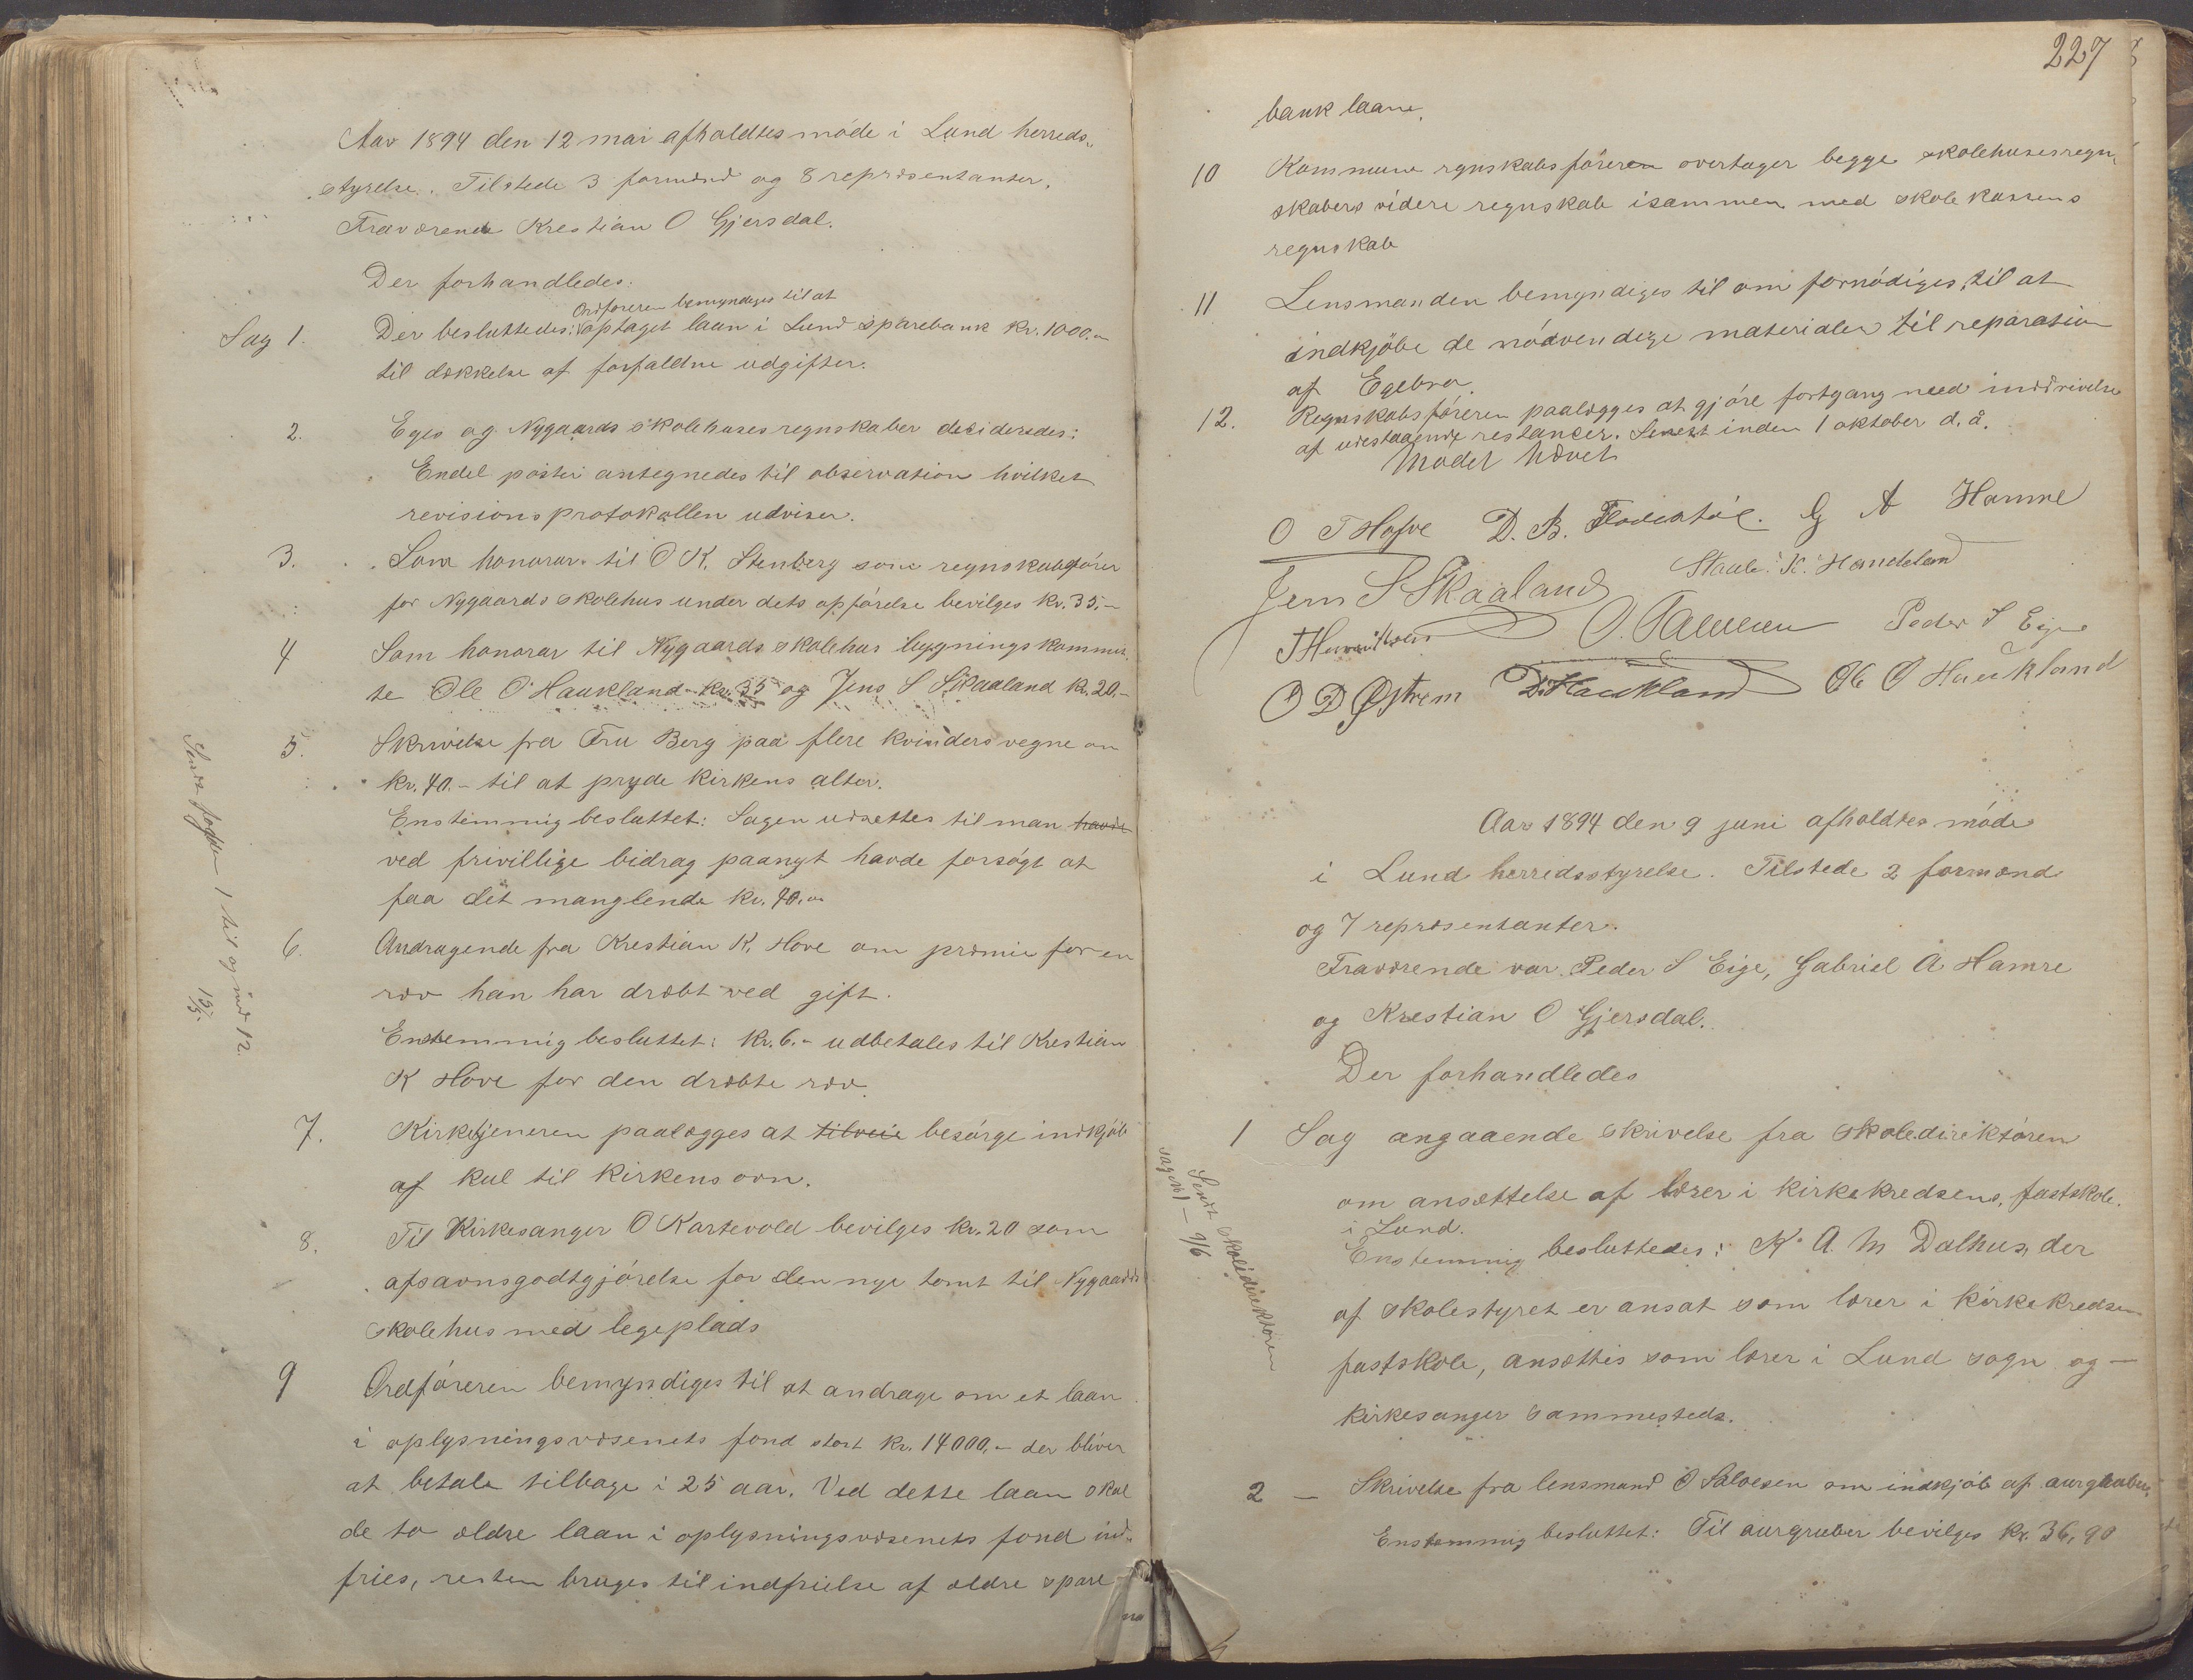 Aar 1894 den 12 mai afholdtes møde i Lund herreds-
styrelse. Tilstede 3 formænd og 8 repræsentanter.
Fraværende Krestian O Gjersdal.
Der forhandledes:
Ordføreren bemyndiges til at
Sag 1. Der besluttedes: optaget laan i Lund sparebank kr. 1000.-
til dækkelse af forfaldne udgifter.
2. Eges og Nygaards skolehusesregnskaber desideredes:
Endel poster antegnedes til observation hvilket
revisionsprotokollen udviser.
3. Som honorar til O K. Stenberg som regnskabsfører
for Nygaards skolehus under dets opførelse bevilges kr. 35.-
4 Som honorar til Nygaards skolehus bygningskommis-
te Ole O Haukland kr. 35 og Jens S Skaaland kr. 20.-
5. Skrivelse fra Fru Berg paa flere kvinders vegne om
kr. 40.- til at pryde kirkens alter.
Enstemmig besluttet: Sagen udsættes til man havde
ved frivillige bidrag paanyt havde forsøgt at
faa det manglende kr. 40.-
6. Andragende fra Krestian K. Hove om præmie for en
ræv han har dræbt ved gift.
Enstemmig besluttet: kr. 6.- udbetales til Krestian
K Hove for den dræbte ræv.
7. Kirketjeneren paalægges at tilveie besørge indkjøb
af kul til kirkens ovn.
8. Til Kirkesanger O Kartevold bevilges kr. 20 som
afsavnsgodtgjørelse for den nye tomt til Nygaards
skolehus med legeplads
9 Ordføreren bemyndiges til at andrage om et laan
i oplysningsvæsenets fond stort kr. 14000.- der bliver
at betale tilbage i 25 aar. Ved dette laan skal
de to ældre laan i oplysningsvæsenets fond ind-
fries, resten bruges til indfrielse af ældre spare
1 til og med 12.
15/5.
227
bank laane.
10 Kommune rgnskabsføreren overtager begge skolehusesregn-
skabers videre regnskab isammen med skole kassens
regnskab
11 Lensmanden bemyndiges til om fornødiges, til at
indkjøbe de nødvendige materialer til reparation
af Egebro.
12. Regnskabsføreren paalægges at gjøre fortgang med inddrivelse
af udestaaende restancer. Senest inden 1 oktober d. å.
Mødet hævet
O T Hove D. B. G A Hamre
Jens S Skaaland Staale K. Handeland
Peder S Eige
O D Østrem D. Haukland Ole O Haukland
Aar 1894 den 9 juni afholdtes møde
i Lund herredsstyrelse. Tilstede 2 formænd
og 7 repræsentanter.
Fraværende var Peder S Eige, Gabriel A Hamre
og Krestian O Gjersdal.
Der forhandledes
1 Sag angaaende skrivelse fra skoledirektøren
om ansættelse af lærer i kirkekredsens, fastskole.
i Lund.
Enstemmig besluttedes: K. A. M Dalhus, der
af skolestyret er ansat som lærer i kirkekredsen
fastskole, ansættes som lærer i Lund sogn og -
kirkesanger sammesteds.
Sendt skoledirektøren
sag no 1 - 9/6
2 - Skrivelse fra lensmand O Salvesen om indkjøb af aurgruber.
Enstemmig besluttet: Til aurgruber bevilges kr. 36,90